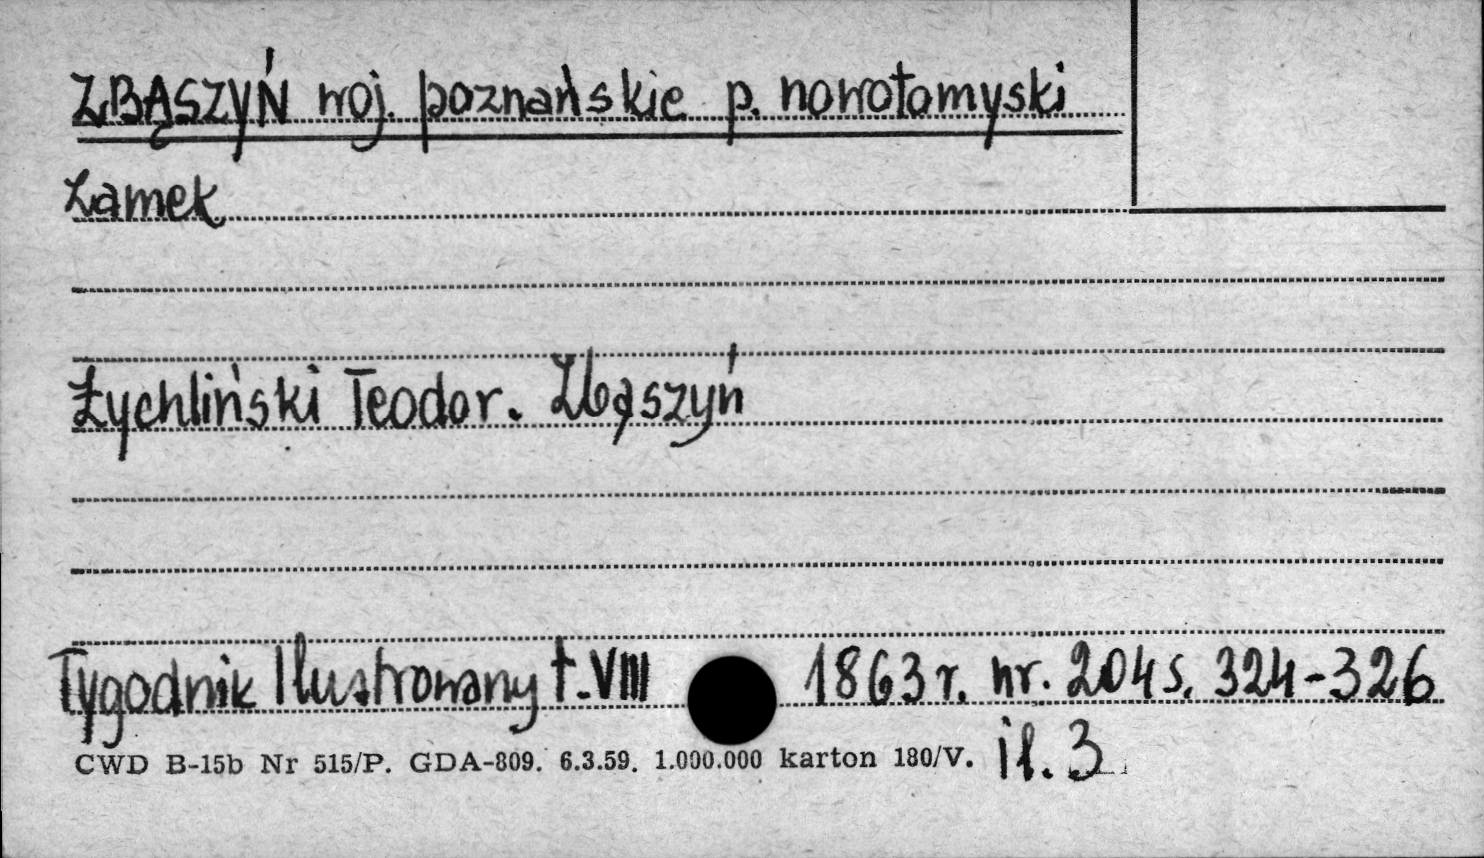 ZBĄSZYŃ woj. poznańskie p. nowotomyski
Zamek
Żychliński Teodor. Zbąszyń
Tygodnik Ilustrowany t. VIII 1863 r. nr. 204 s. 324-326
CWD B-15b Nr 515/P. GDA-809. 6.3.59. 1.000.000 karton 180/V. il. 3